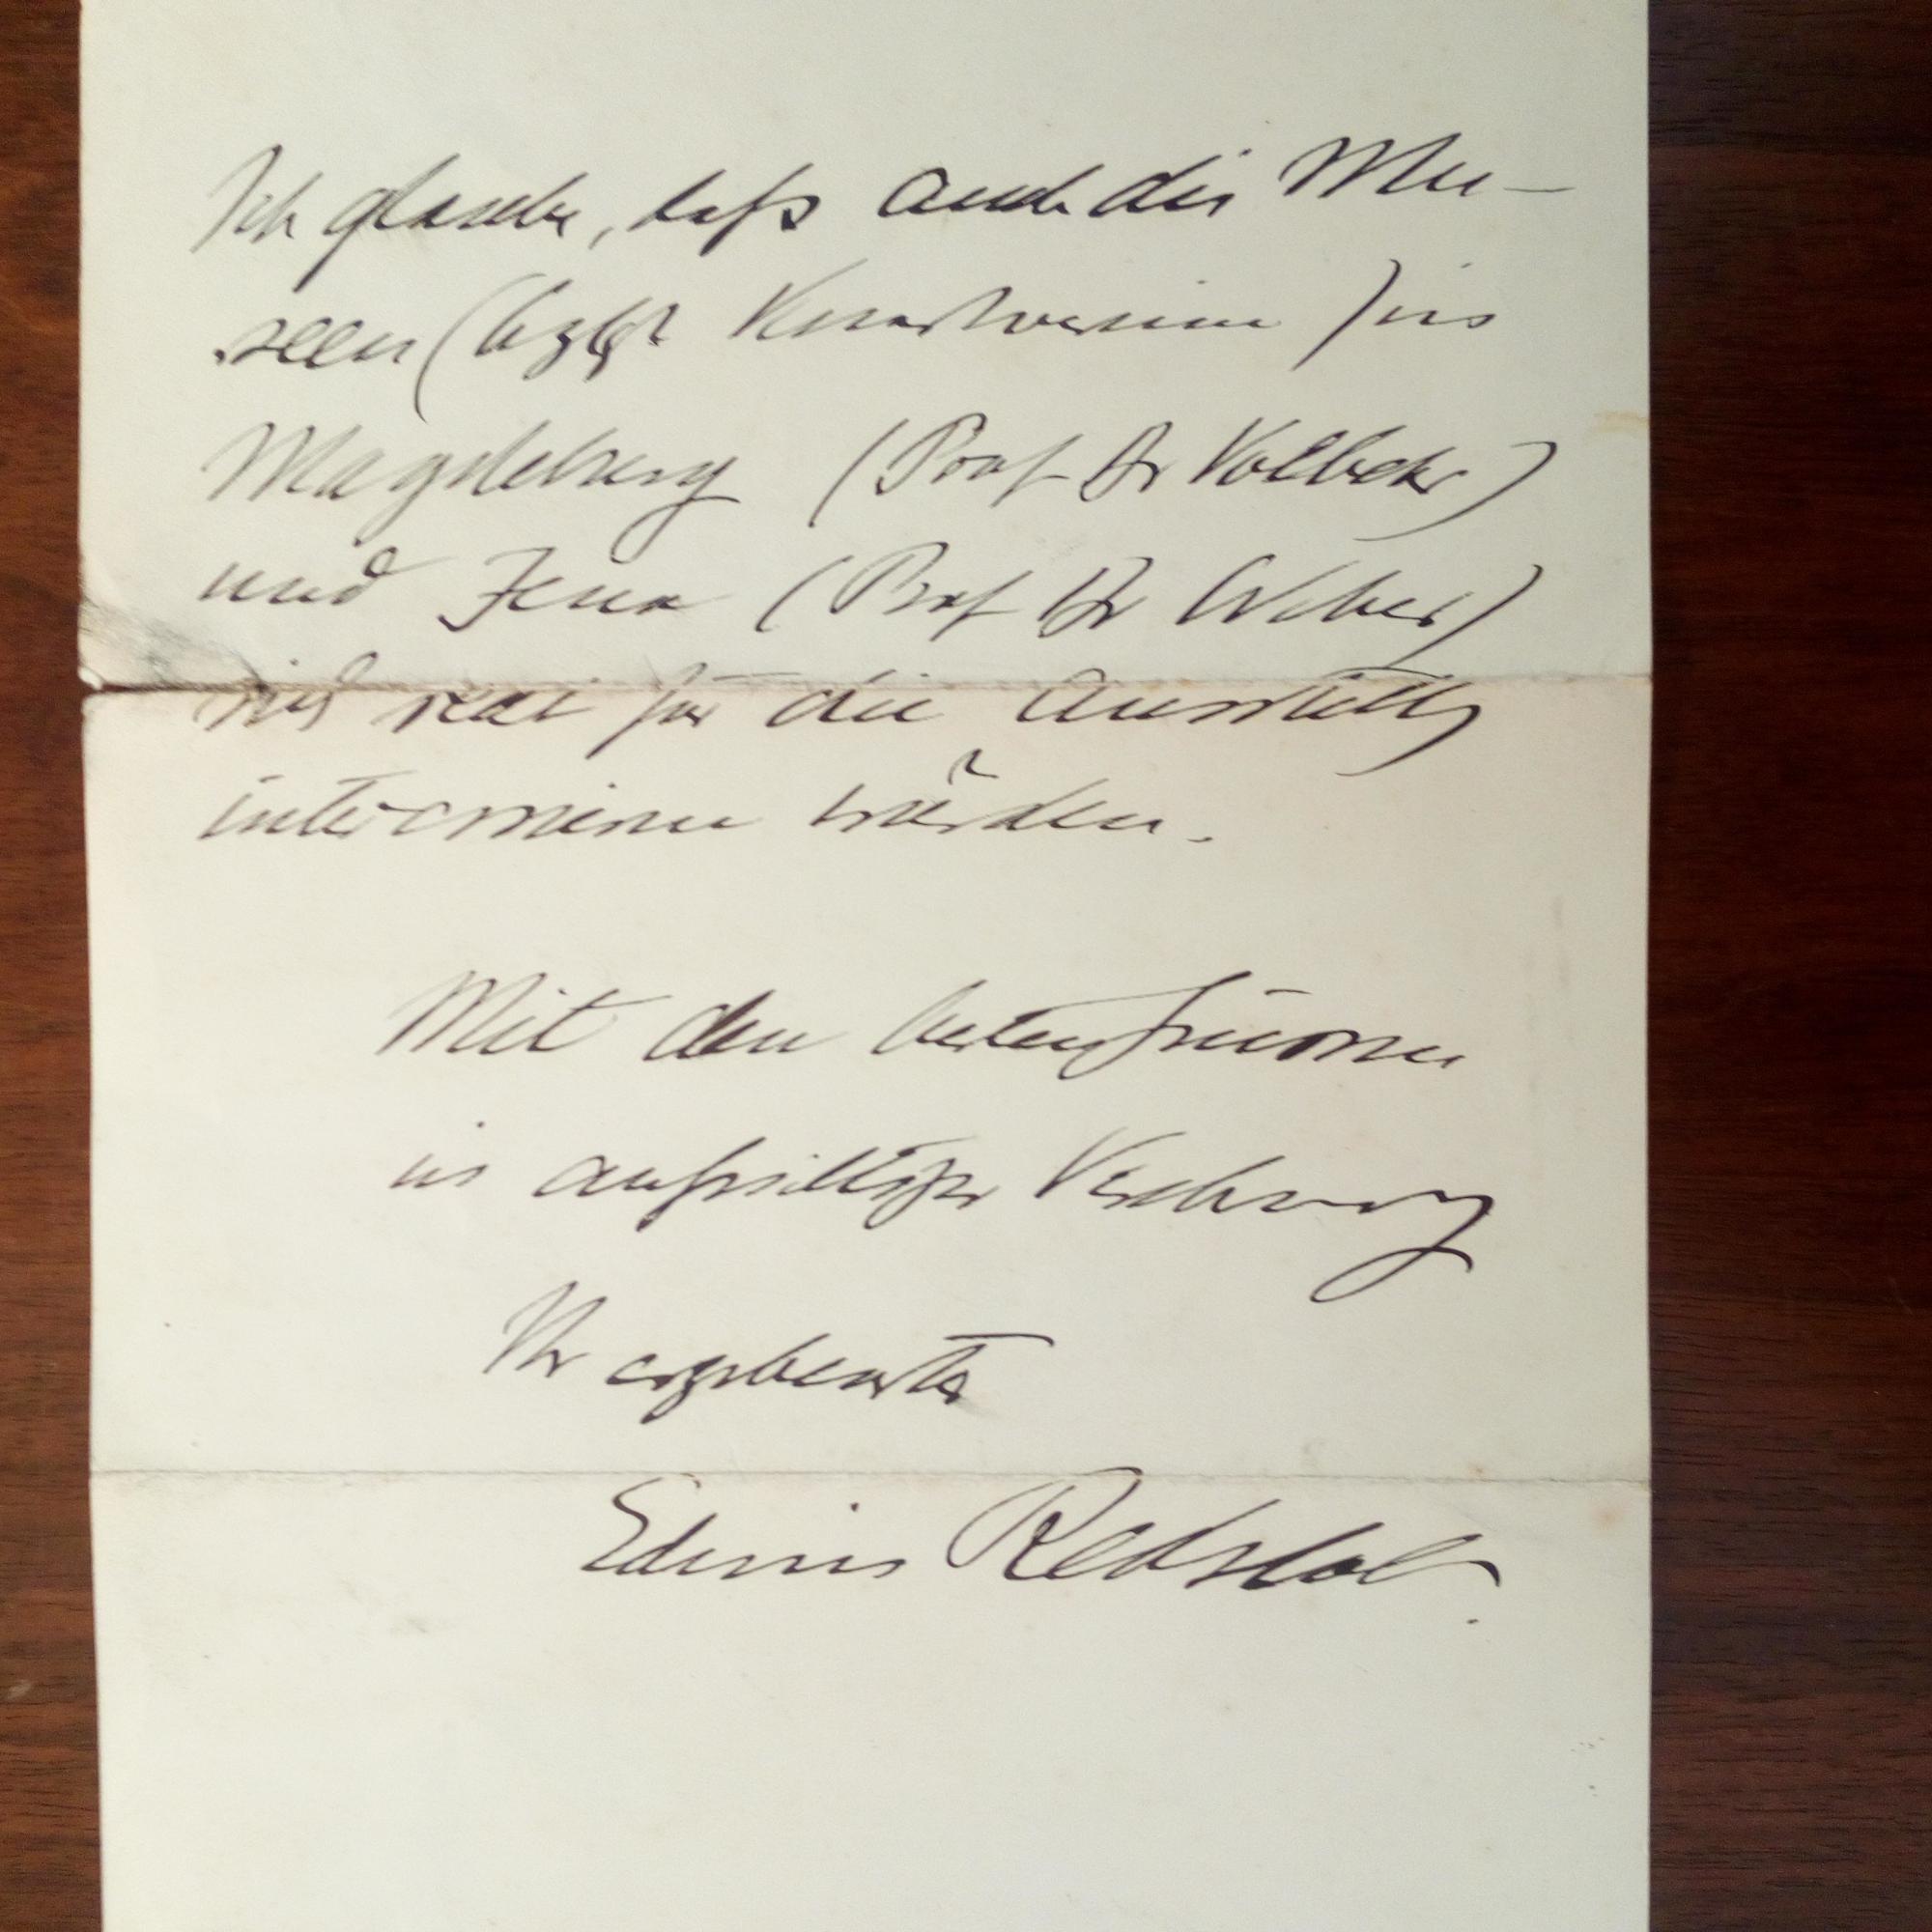 Ich glaube, daß auch die Mu-
seen (bezgl. Kunstvereine) in
Magdeburg (Prof Dr Volbehr)
und Jena (Prof Dr Weber)
sich sehr für die Ausstellg
interessieren würden.
Mit den besten Grüssen
in aufrichtiger Verehrung
Ihr ergebenster
Edwin Redslob.